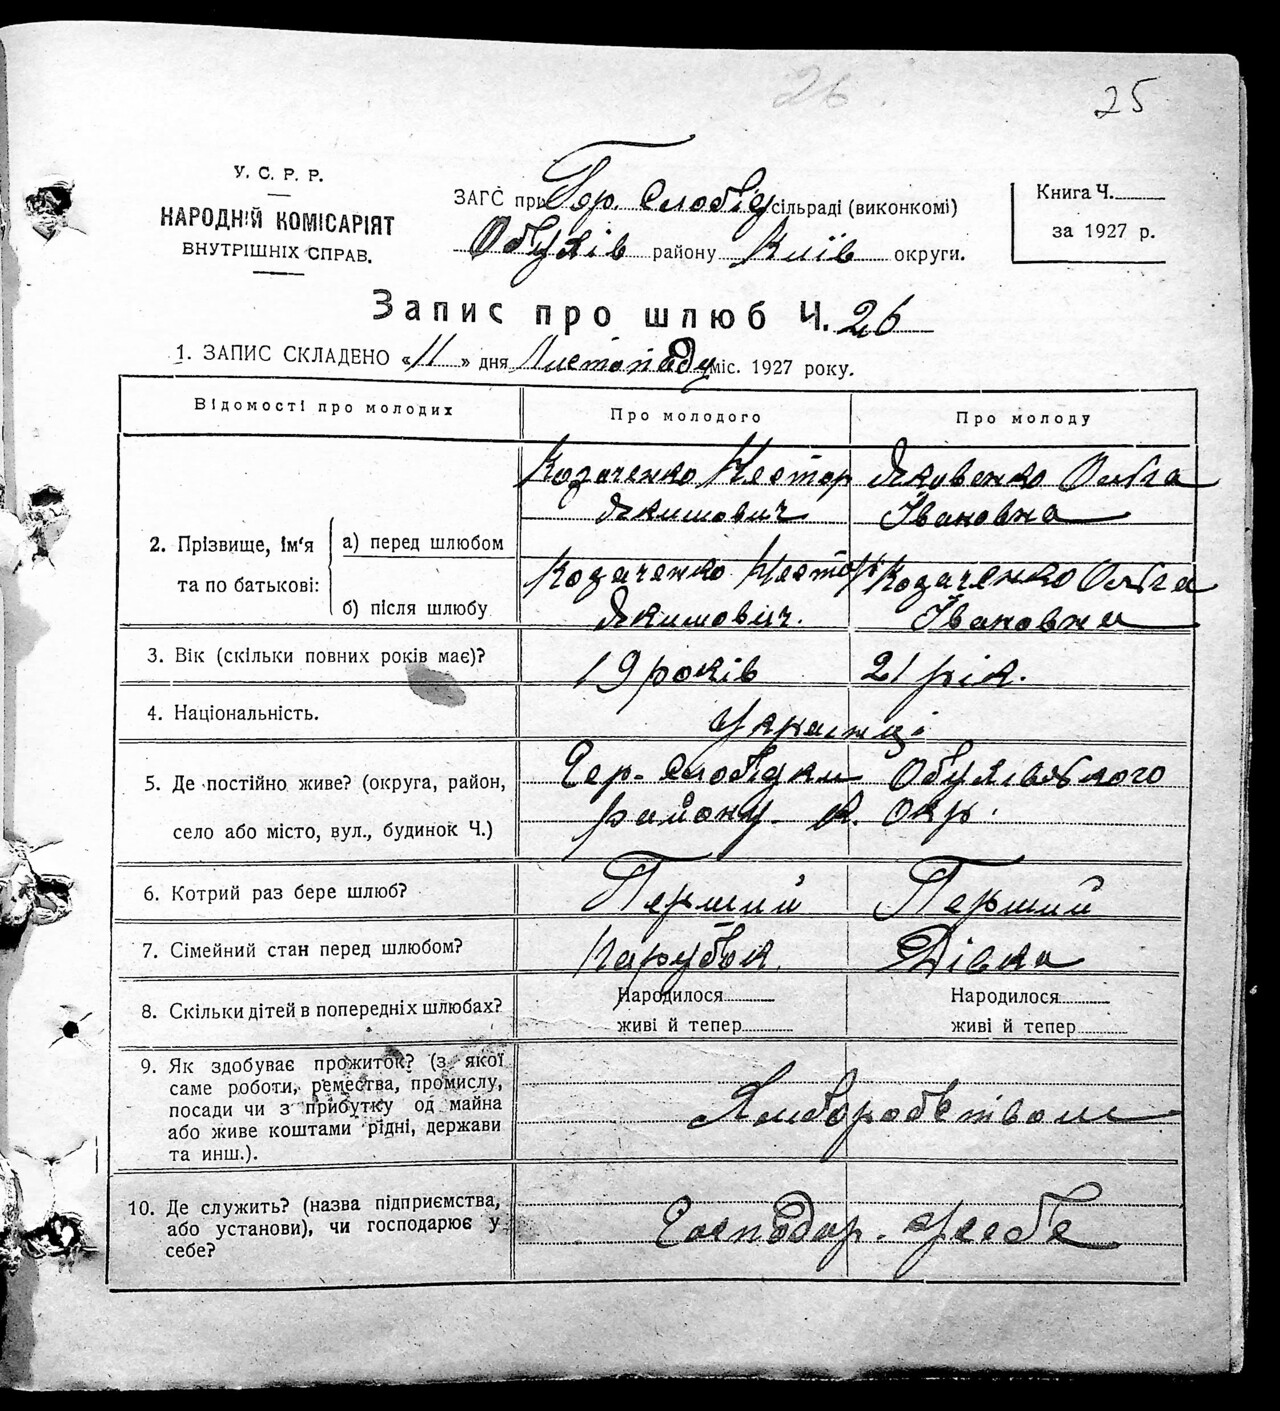 26.
25
У. С. Р. Р.
НАРОДНІЙ КОМІСАРІЯТ
ВНУТРІШНІХ СПРАВ.
ЗАГС при Гер. Слобід сільраді (виконкомі)
Обухів району Київ округи.
Книга Ч.
за 1927 р.
Запис про шлюб Ч. 26
1. ЗАПИС СКЛАДЕНО «11» дня Листопаду міс. 1927 року.
Відомості про молодих
Про молодого
Про молоду
2. Прізвище, ім'я та по батькові:
а) перед шлюбом
Козаченко Нестор
Якимович
Яковенко Ольга
Івановна
б) після шлюбу
Козаченко Нестор
Якимович.
Козаченко Ольга
Івановна
3. Вік (скільки повних років має)?
19 років
21 рік.
4. Національність.
Українці
5. Де постійно живе? (округа, район,
село або місто, вул., будинок Ч.)
Гер. Слобідки Обухівського
району. К. Окр.
6. Котрий раз бере шлюб?
Перший
Перший
7. Сімейний стан перед шлюбом?
Парубок
Дівка
8. Скільки дітей в попередніх шлюбах?
Народилося
живі й тепер
Народилося
живі й тепер
9. Як здобуває прожиток? (з якої
саме роботи, ремества, промислу,
посади чи з прибутку од майна
або живе коштами рідні, держави
та инш.).
Хліборобством
10. Де служить? (назва підприємства,
або установи), чи господарює у
себе?
Господар. у себе